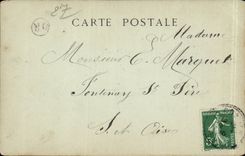 87
CARTE POSTALE
Madame
Monsieur E. Marquet
Fontenay St Père
S. et Oise